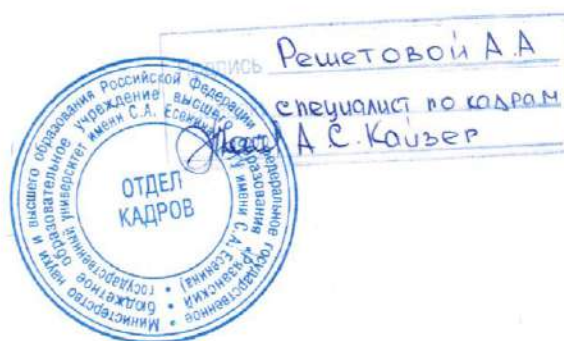 Подпись Решетовой А.А
специалист по кадрам
А.С. Кайзер
Министерство науки и высшего образования Российской Федерации • Федеральное государственное
бюджетное образовательное учреждение высшего образования «Рязанский
государственный университет имени С.А. Есенина»
имени С.А. Есенина)
ОТДЕЛ
КАДРОВ